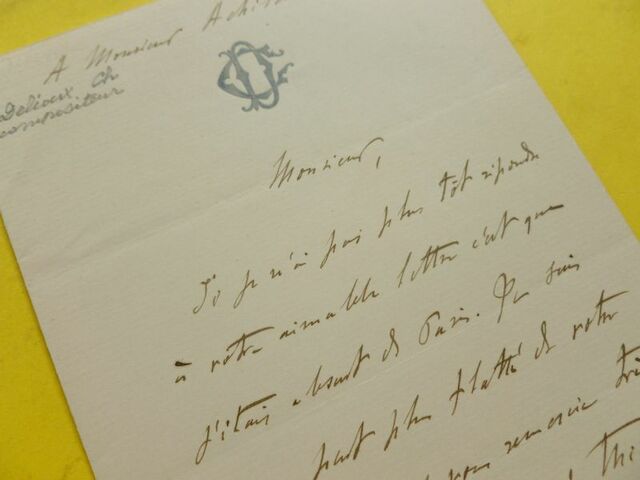 A Monsieur Achi
Delioux Ch
compositeur
Monsieur,
Si je n'ai pas plus tôt répondu
à votre aimable lettre c'est que
j'étais absent de Paris. Je suis
peut plus flatté de votre
vous remercie